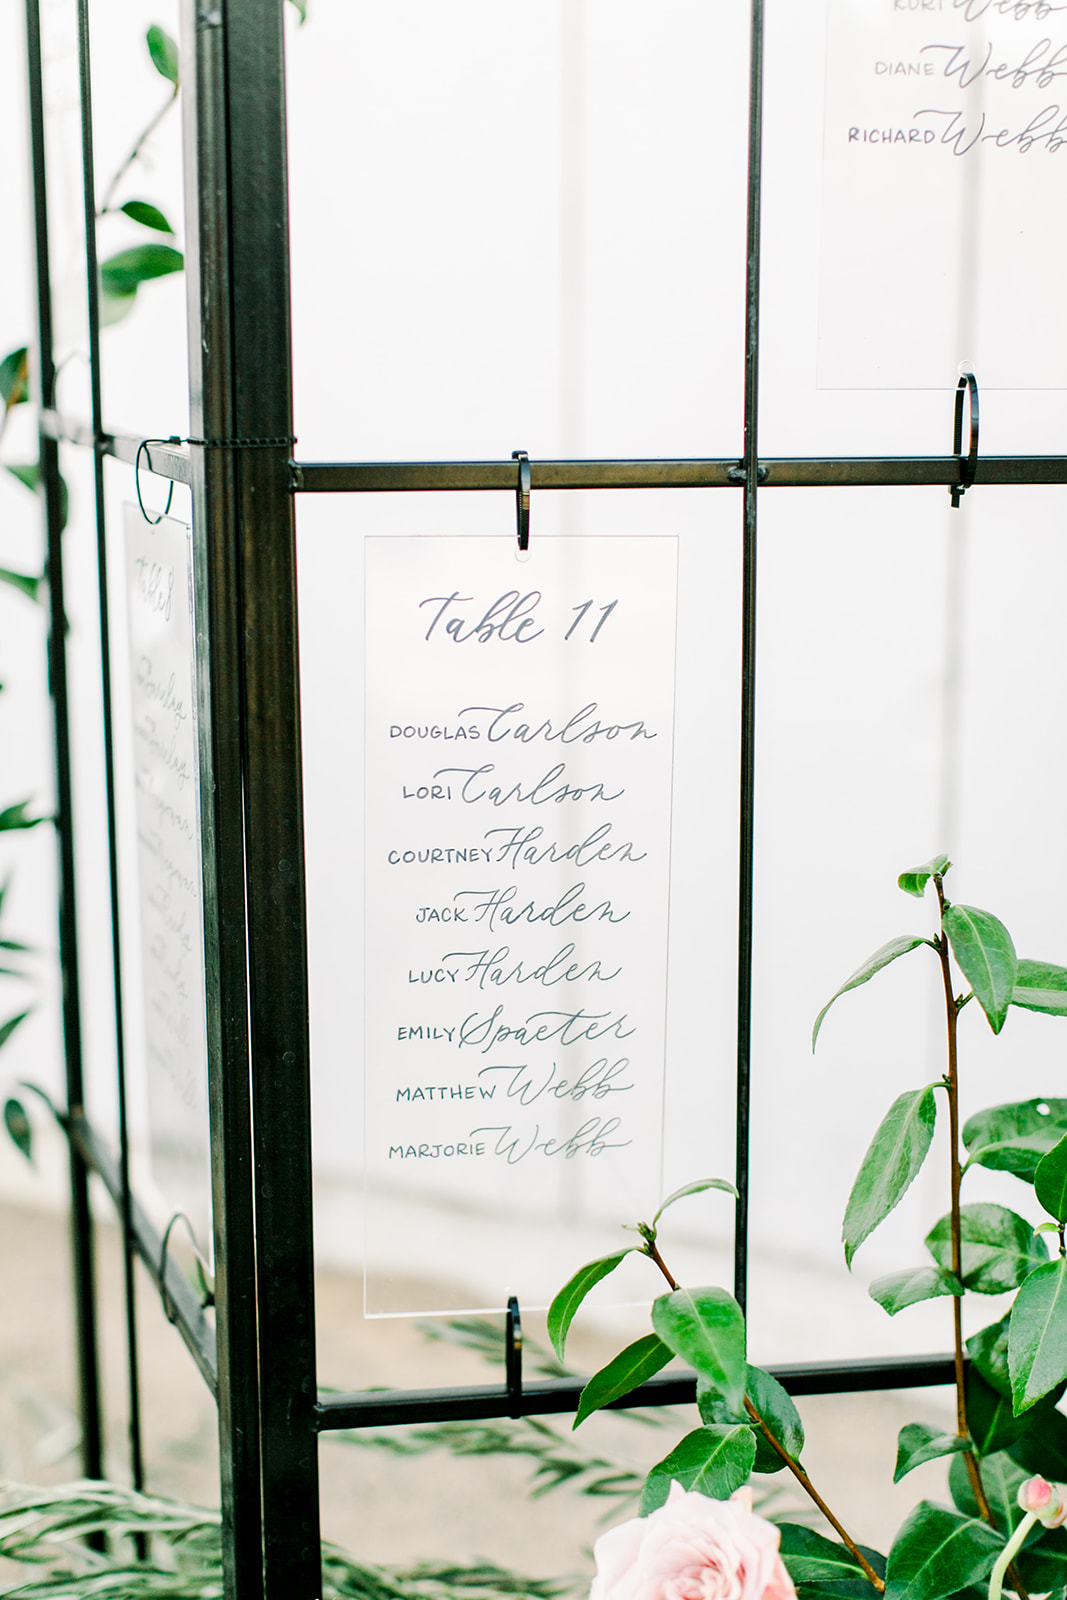 KURT Webb
DIANE Webb
RICHARD Webb
Table 11
DOUGLAS Carlson
LORI Carlson
COURTNEY Harden
JACK Harden
LUCY Harden
EMILY Spaeter
MATTHEW Webb
MARJORIE Webb
Table 8